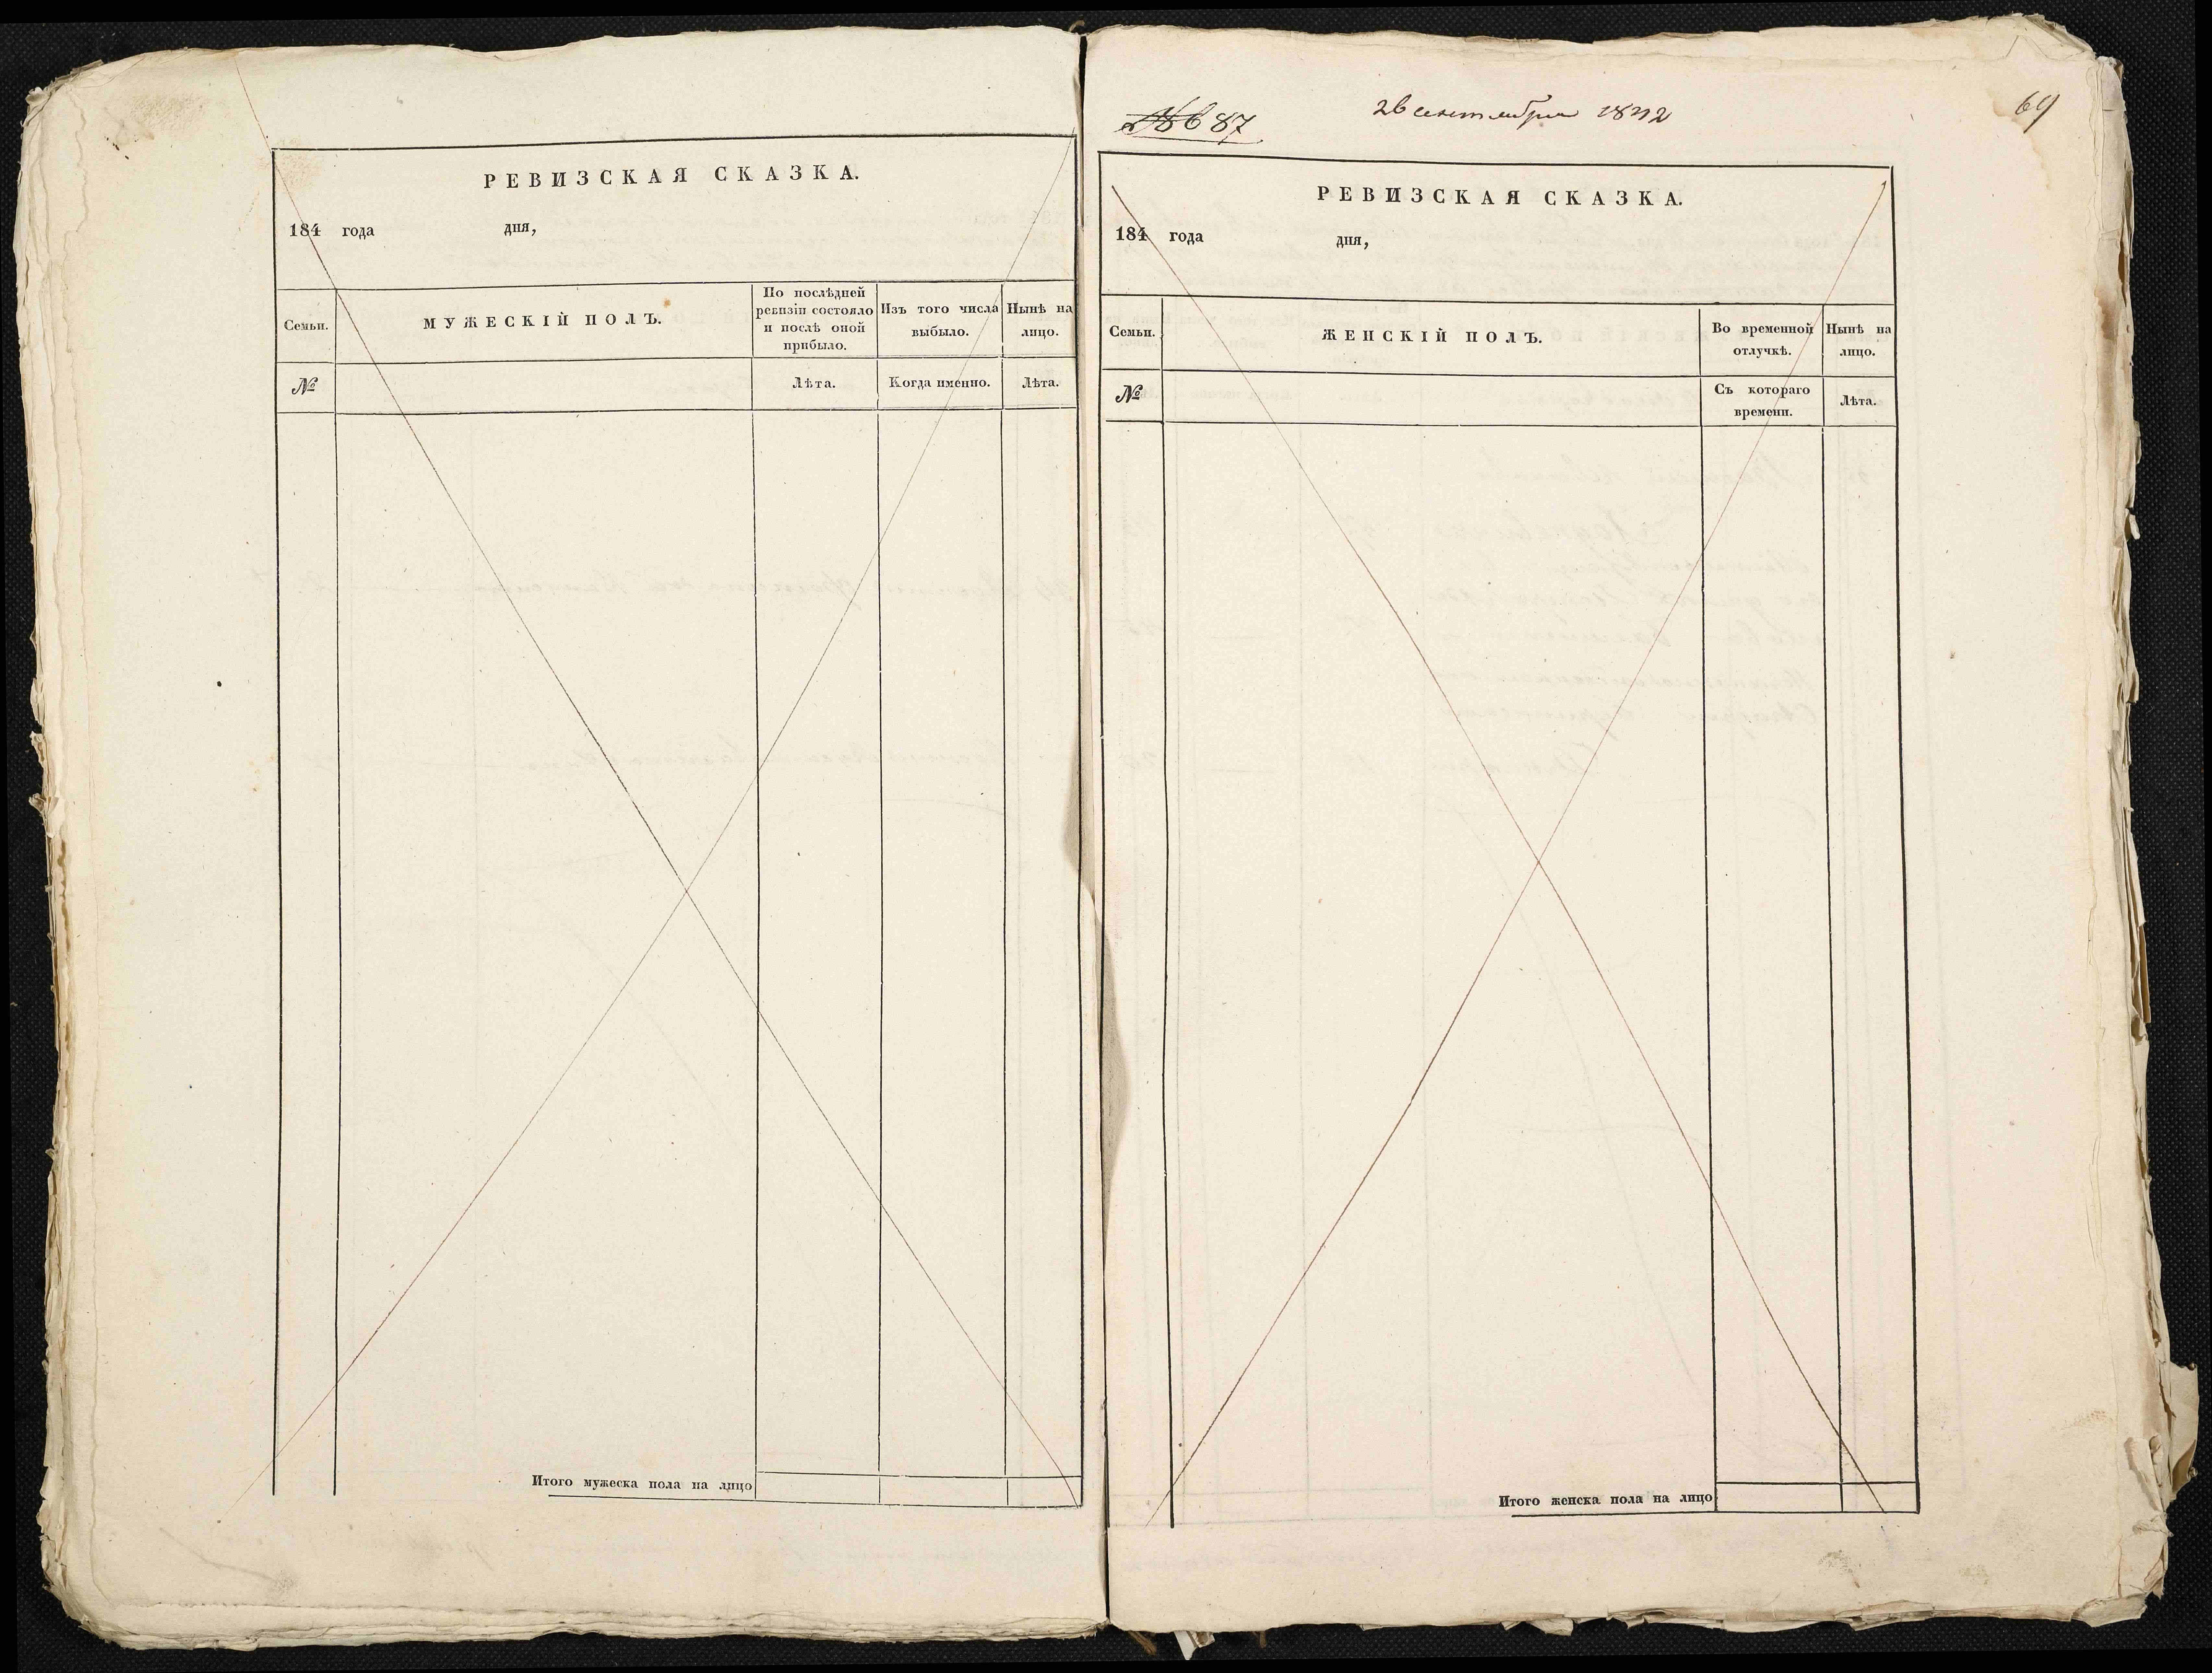 РЕВИЗСКАЯ СКАЗКА.
184 года дня,
Семьи.
МУЖЕСКІЙ ПОЛЪ.
По послѣдней ревизіи состояло и послѣ оной прибыло.
Изъ того числа выбыло.
Нынѣ на лицо.
№
Лѣта.
Когда именно.
Лѣта.
Итого мужеска пола на лицо
87
26 сентября
69
РЕВИЗСКАЯ СКАЗКА.
184 года дня,
Семьи.
ЖЕНСКІЙ ПОЛЪ.
Во временной отлучкѣ.
Нынѣ на лицо.
№
Съ котораго времени.
Лѣта.
Итого женска пола на лицо